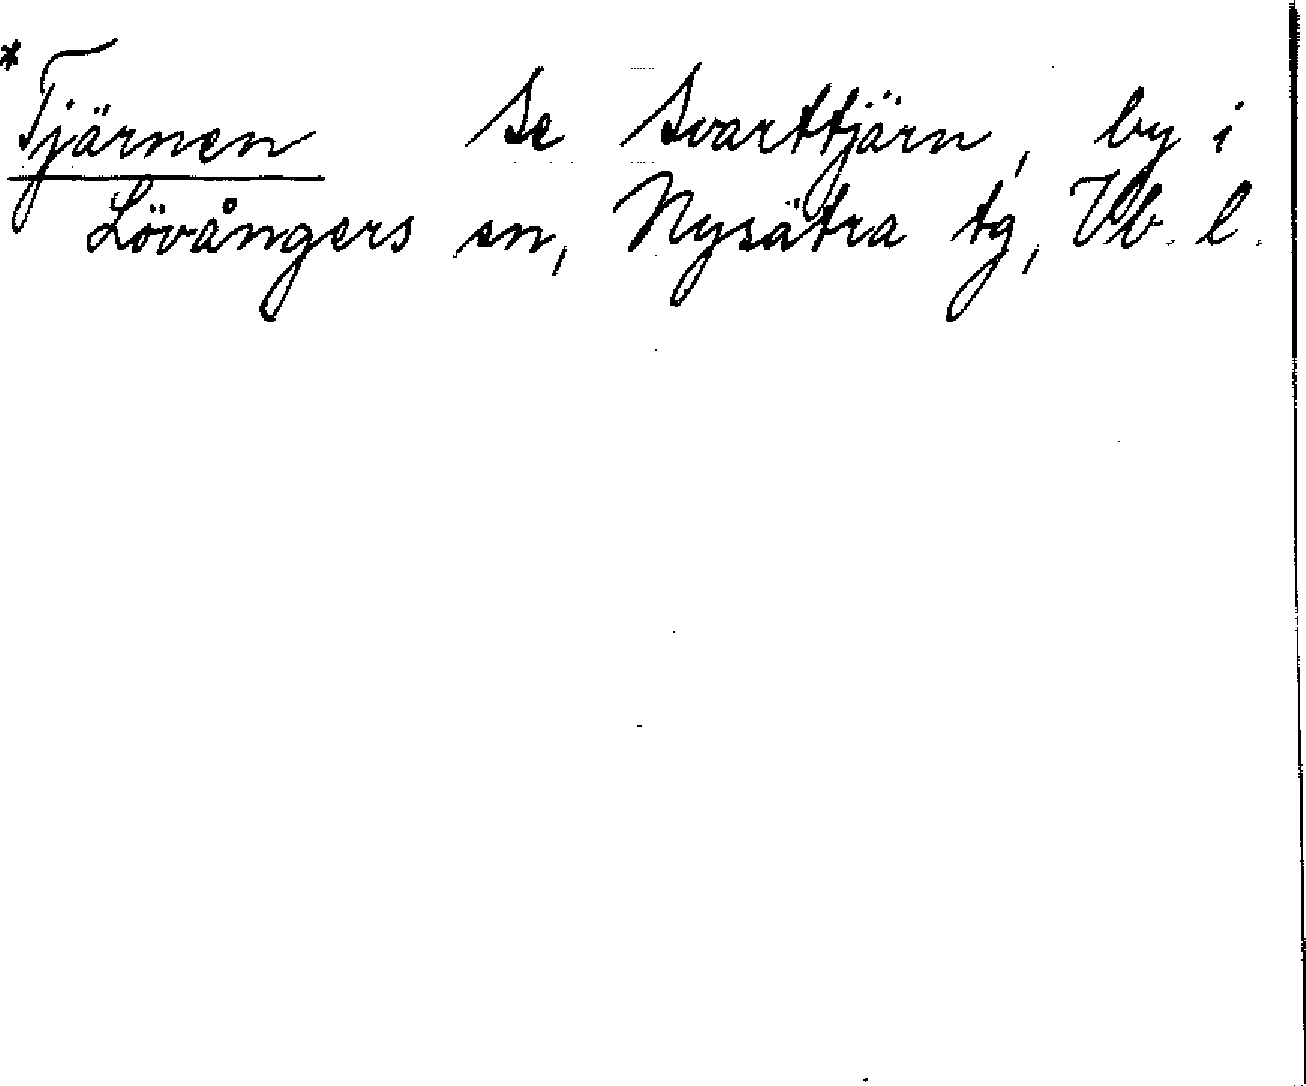 *Tjärnen Se Svarttjärn, by i
Lövångers sn, Nysätra tg, Vb. l.